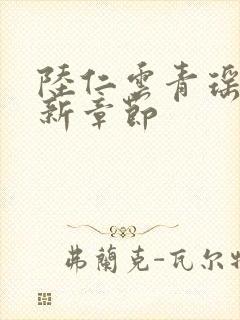 陸仁雲青瑶
新章節
弗蘭克-瓦尔特